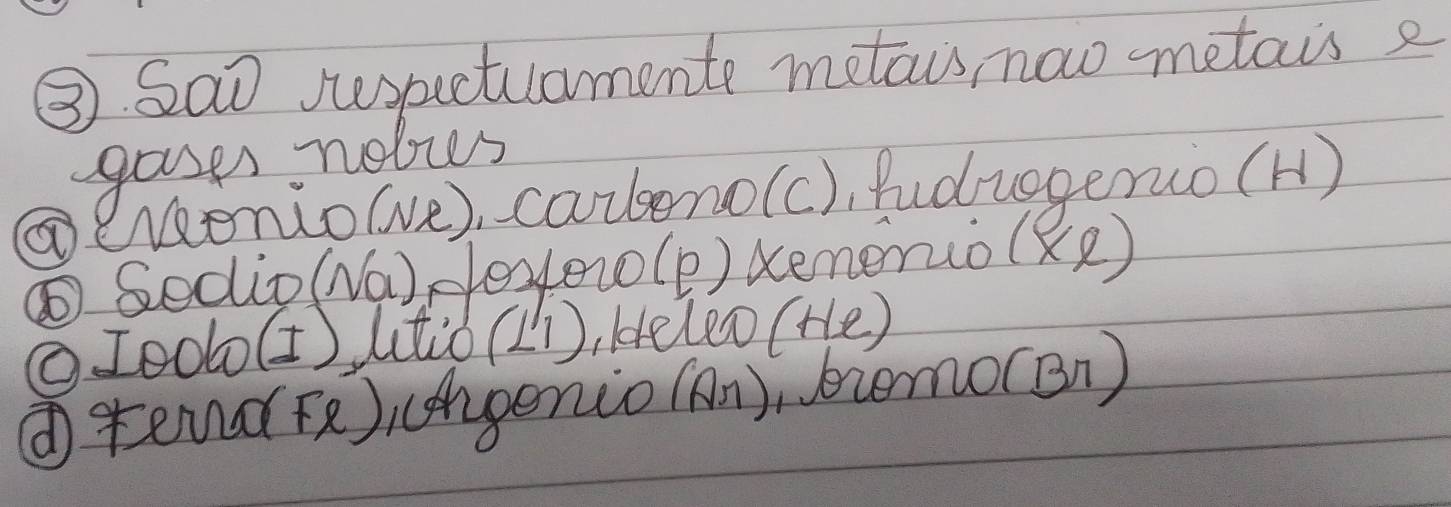 ③. Sao respectuamente metais, nao metais e
gases nobres
ⓐ Neonio (Ne), carbono (C), hidrogenio (H)
ⓑ Sodio (Na), fosforo (P) xenônio (Xe)
ⓒ Iodo (I), Litio (Li), Heleo (He)
ⓓ ferro (Fe), Argonio (Ar), bromo (Br)